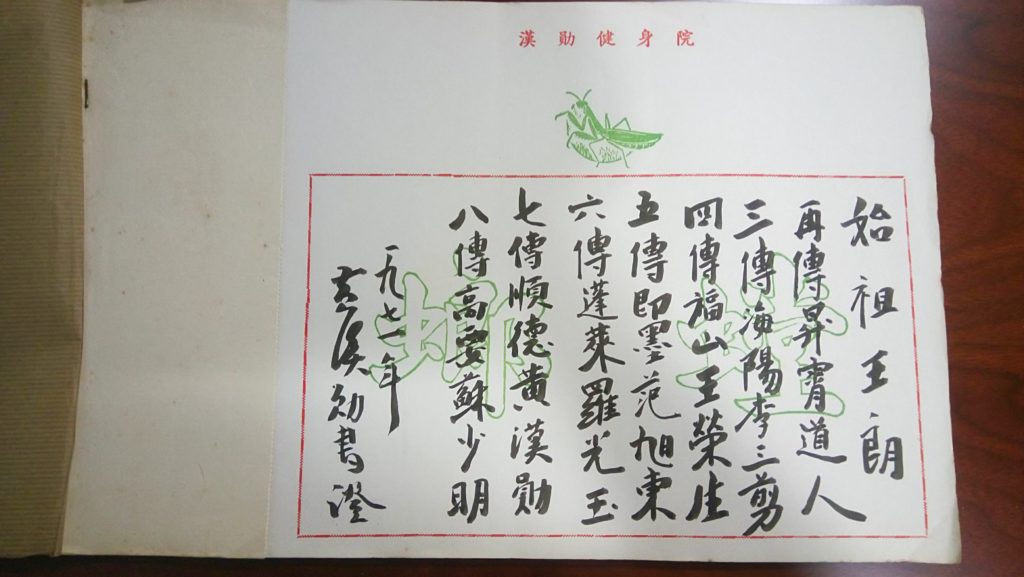 漢勛健身院
始祖王朗
再傳昇霄道人
三傳海陽李三剪
四傳福山王榮生
五傳即墨范旭東
六傳蓬萊羅光玉
七傳順德黃漢勛
八傳高要蘇少明
一九七一年
黃漢勛書
螳螂